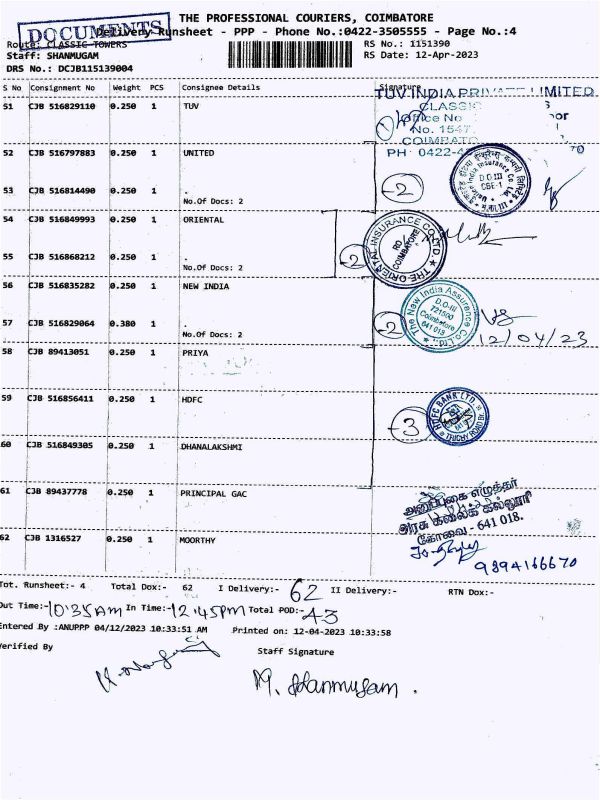 THE PROFESSIONAL COURIERS, COIMBATORE
DOCUMENTS
Delivery Runsheet - PPP - Phone No.:0422-3505555 - Page No.:4
Route: CLASSIC TOWERS
RS No.: 1151390
Staff: SHANMUGAM
RS Date: 12-Apr-2023
DRS No.: DCJB115139004
S No Consignment No Weight PCS Consignee Details Signature
51 CJB 516829110 0.250 1 TUV
TUV INDIA PRIVATE LIMITED
CLASSIC
Office No
No. 1547,
COIMBATO
PH: 0422-4 70
52 CJB 516797883 0.250 1 UNITED
53 CJB 516814490 0.250 1 .
No.Of Docs: 2
-2
D.O.III
CBE-1
54 CJB 516849993 0.250 1 ORIENTAL
55 CJB 516868212 0.250 1 .
No.Of Docs: 2
-2
THE ORIENTAL INSURANCE CO. LTD.
RO
COIMBATORE
56 CJB 516835282 0.250 1 NEW INDIA
57 CJB 516829064 0.380 1 .
No.Of Docs: 2
-2
The New India Assurance Co. Ltd.
D.O-III
721500
Coimbatore
641 018
12/04/23
58 CJB 89413051 0.250 1 PRIYA
59 CJB 516856411 0.250 1 HDFC
-3
HDFC BANK LTD.
TRICHY ROAD BR.
60 CJB 516849305 0.250 1 DHANALAKSHMI
61 CJB 89437778 0.250 1 PRINCIPAL GAC
அனுப்புகை எழுத்தர்
அரசு கலைக் கல்லூரி
கோவை - 641 018.
62 CJB 1316527 0.250 1 MOORTHY
9894166670
Tot. Runsheet:- 4 Total Dox:- 62 I Delivery:- 62 II Delivery:- RTN Dox:-
Out Time:- 10:35AM In Time:- 12:45PM Total POD:- 43
Entered By :ANUPPP 04/12/2023 10:33:51 AM Printed on: 12-04-2023 10:33:58
Verified By
Staff Signature
M. Shanmugam.